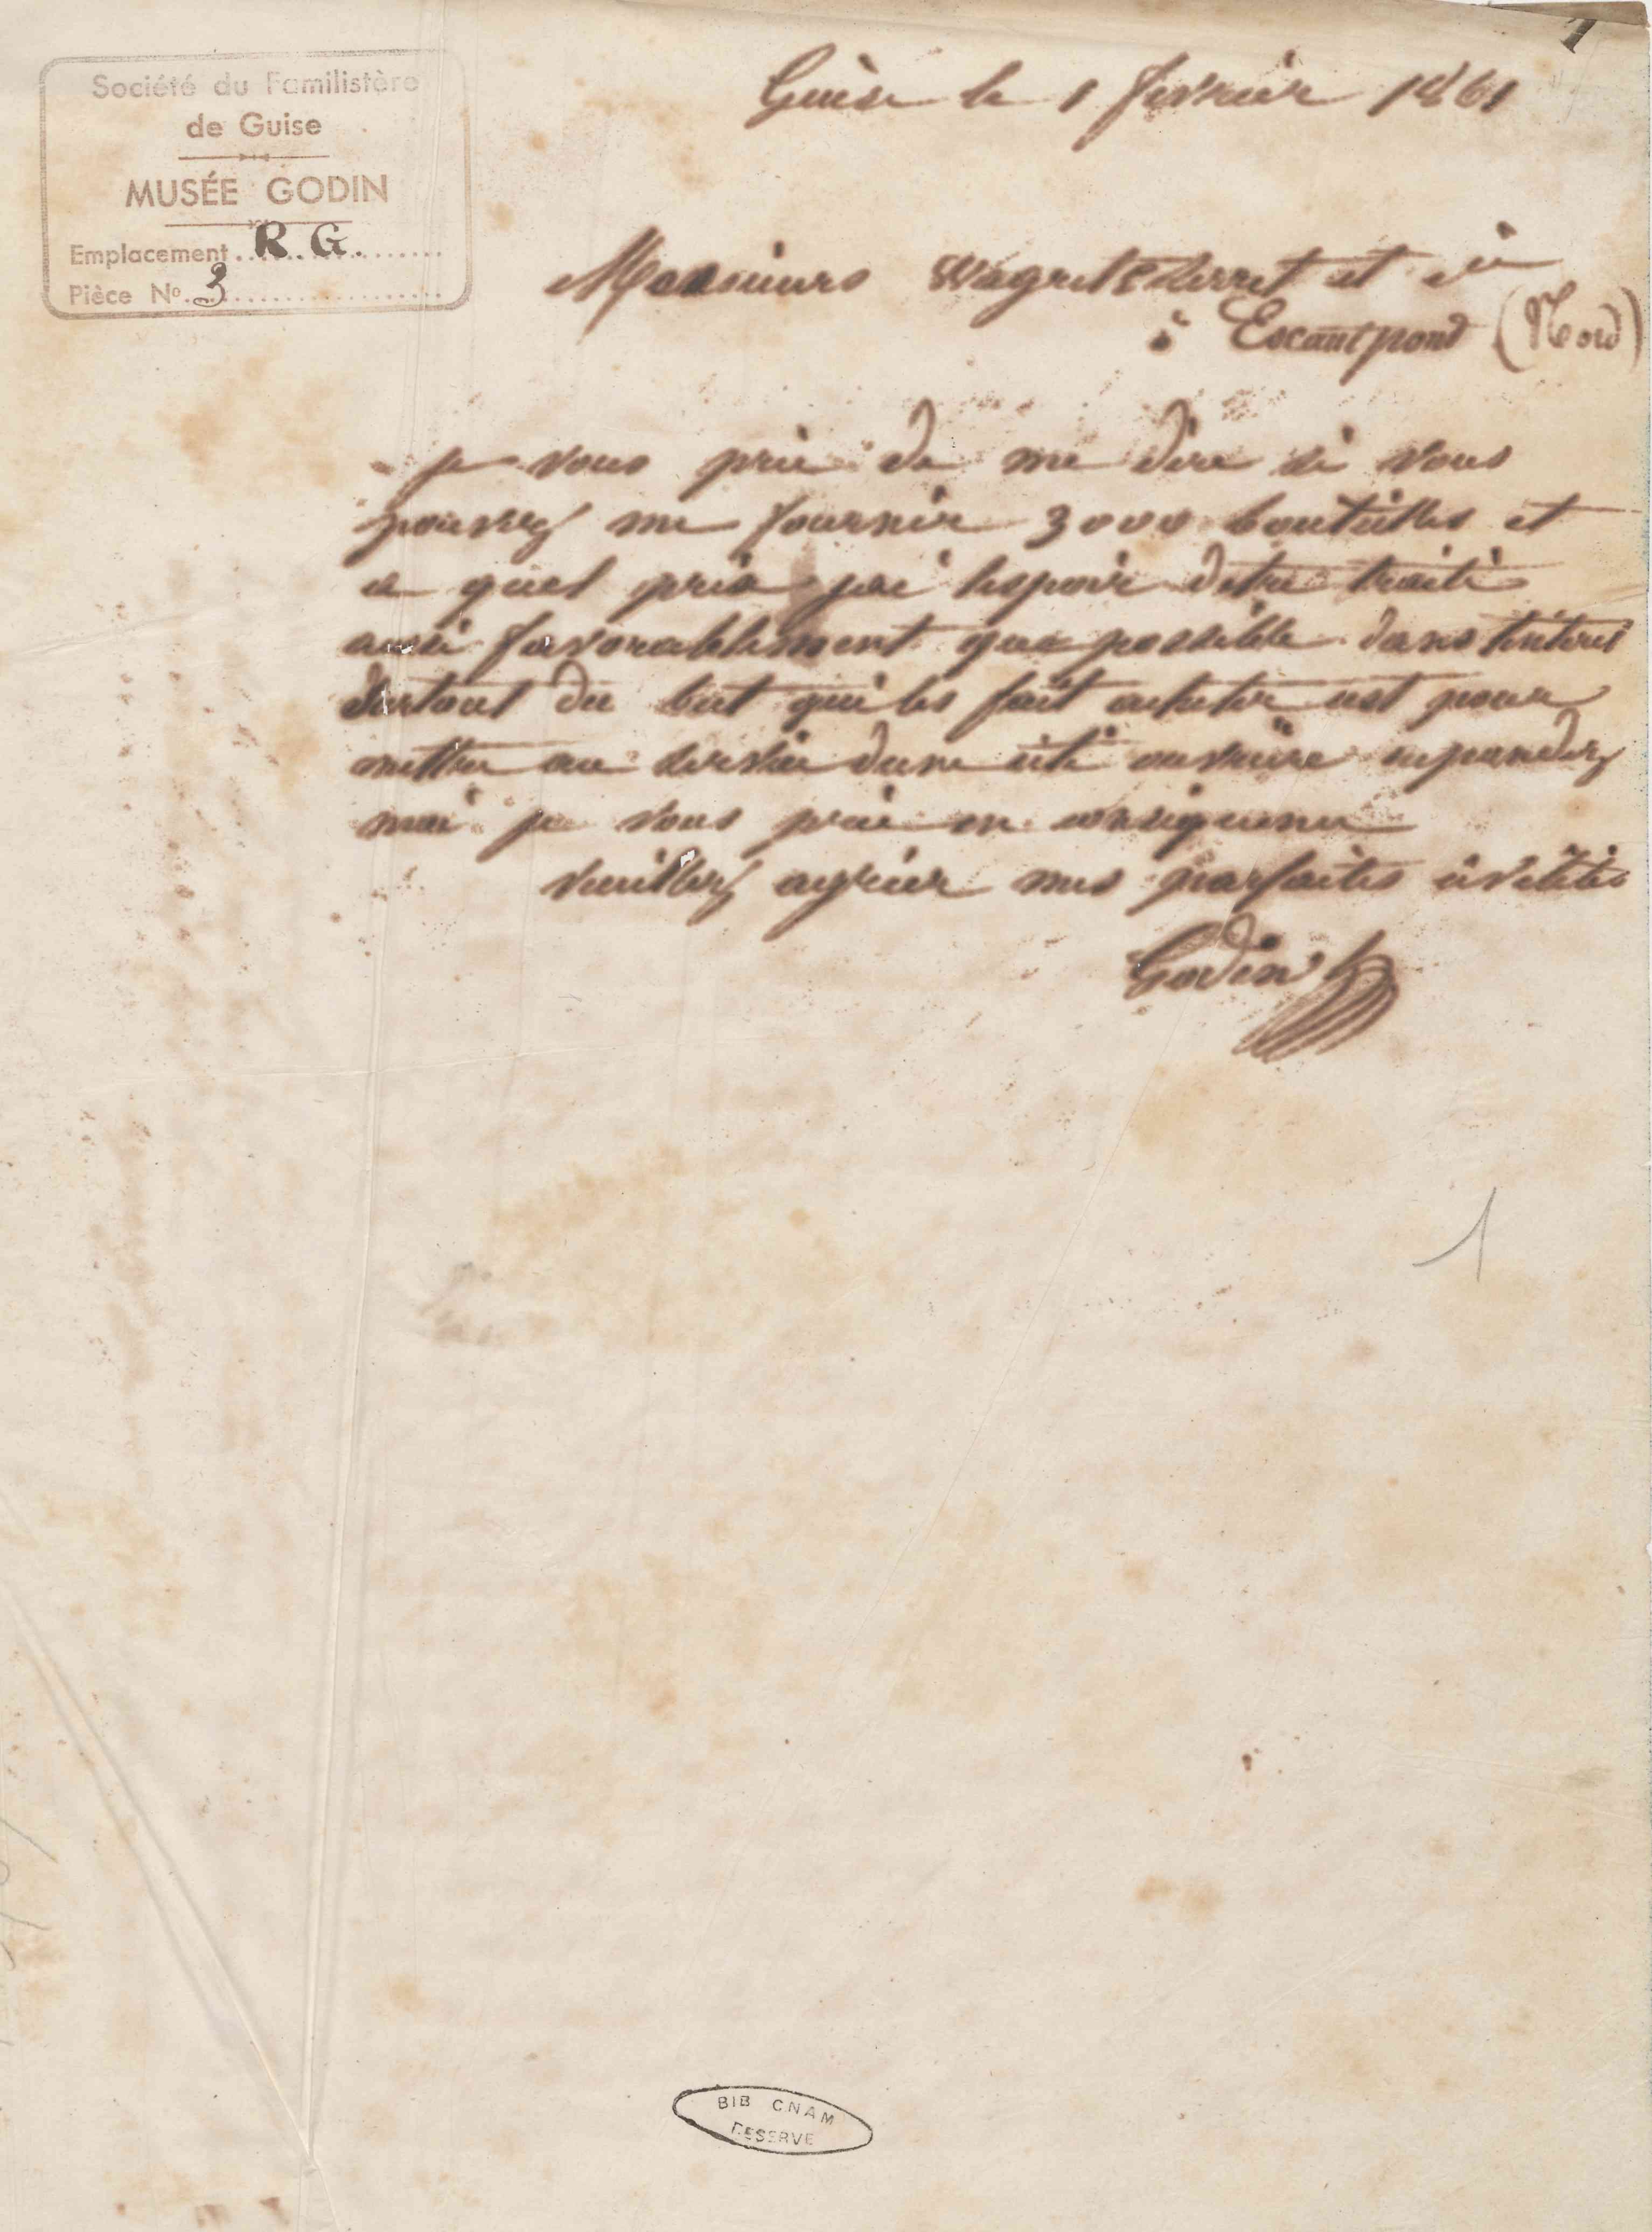 1
Société du Familistère
de Guise
MUSÉE GODIN
Emplacement R. G.
Pièce No. 3
Guise le 1 fevrier 1861
Messieurs Wagret Serret et cie
à Escautpont (Nord)
je vous prie de me dire si vous
pouvez me fournir 3000 bouteilles et
a quel prix jai lespoir detre traité
aussi favorablement que possible dans linteret
surtout du but qui les fait acheter cest pour
mettre au service dune cité ouvriere repondez
moi je vous prie en consequence
veuillez agréer mes parfaites civilités
Godin
1
BIB CNAM
RESERVE